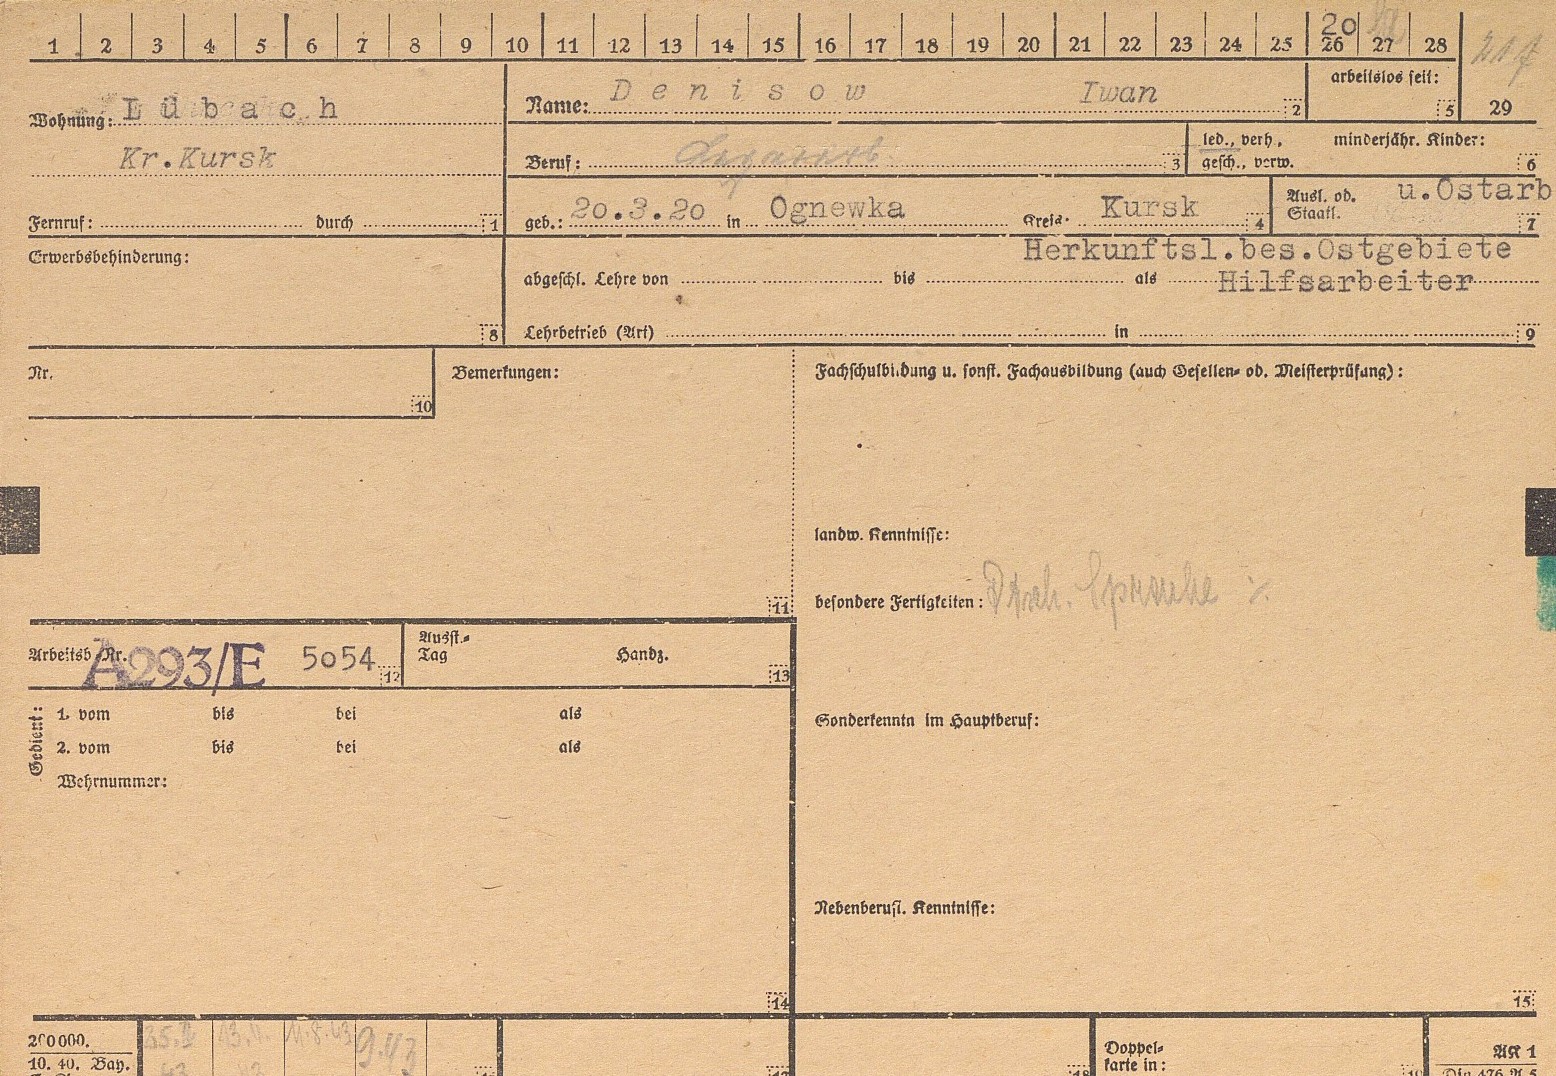 1 2 3 4 5 6 7 8 9 10 11 12 13 14 15 16 17 18 19 20 21 22 23 24 25 26 27 28
20
29
Wohnung: Lübach
Kr.Kursk
Fernruf: durch 1
Name: Denisow Iwan 2
arbeitslos seit: 5
Beruf: 3
led., verh., gesch., verw.
minderjähr. Kinder: 6
geb.: 20.3.20 in Ognewka Kreis: Kursk 4
Ausl. od. Staatl. u.Ostarb 7
Erwerbsbehinderung:
8
Herkunftsl.bes.Ostgebiete
abgeschl. Lehre von bis als Hilfsarbeiter
Lehrbetrieb (Art) in 9
Nr.
10
Bemerkungen:
11
Fachschulbildung u. sonst. Fachausbildung (auch Gesellen- od. Meisterprüfung):
landw. Kenntnisse:
besondere Fertigkeiten: Sprache
Arbeitsb Nr. A293/E 5054 12
Ausst.-
Tag Handz. 13
Gedient:
1. vom bis bei als
2. vom bis bei als
Wehrnummer:
14
Sonderkenntn im Hauptberuf:
Nebenberufl. Kenntnisse:
15
200000.
10. 40. Bay.
11.8.43
9.43
Doppel-
karte in:
AK 1
Din 476 A 5